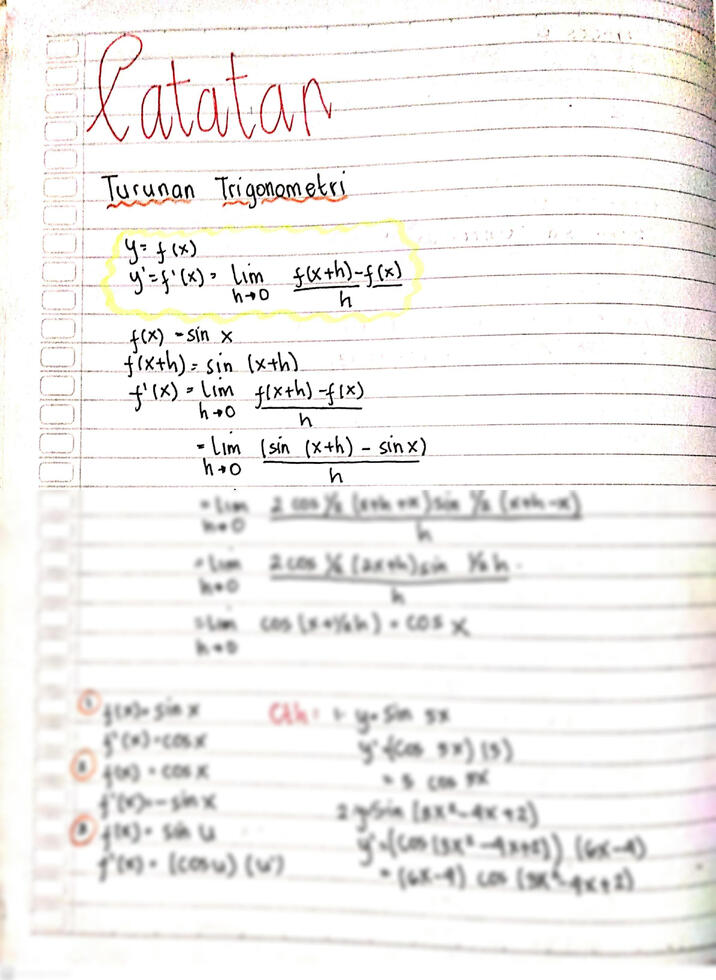 Catatan
Turunan Trigonometri
y = f(x)
y' = f'(x) = lim h→0 f(x+h)-f(x) / h
f(x) = sin x
f(x+h) = sin (x+h)
f'(x) = lim h→0 f(x+h) - f(x) / h
= lim h→0 (sin (x+h) - sin x) / h
= lim h→0 2 cos ½ (x+h+x) sin ½ (x+h-x) / h
= lim h→0 2 cos ½ (2x+h) sin ½ h / h
= lim h→0 cos (x+½h) = cos x
1 f(x) = sin x
f'(x) = cos x
2 f(x) = cos x
f'(x) = -sin x
3 f(x) = sin u
f'(x) = (cos u) (u')
Cth : 1. y = sin 5x
y' = (cos 5x) (5)
= 5 cos 5x
2. y = sin (3x²-4x+2)
y' = (cos (3x²-4x+2)) (6x-4)
= (6x-4) cos (3x²-4x+2)